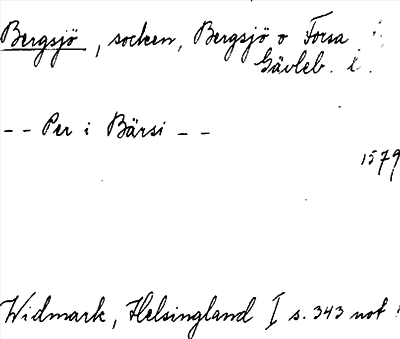 Bergsjö, socken, Bergsjö o Forsa
Gävleb. l.
-- Per i Bärsi --
1579
Widmark, Helsingland I s. 343 not